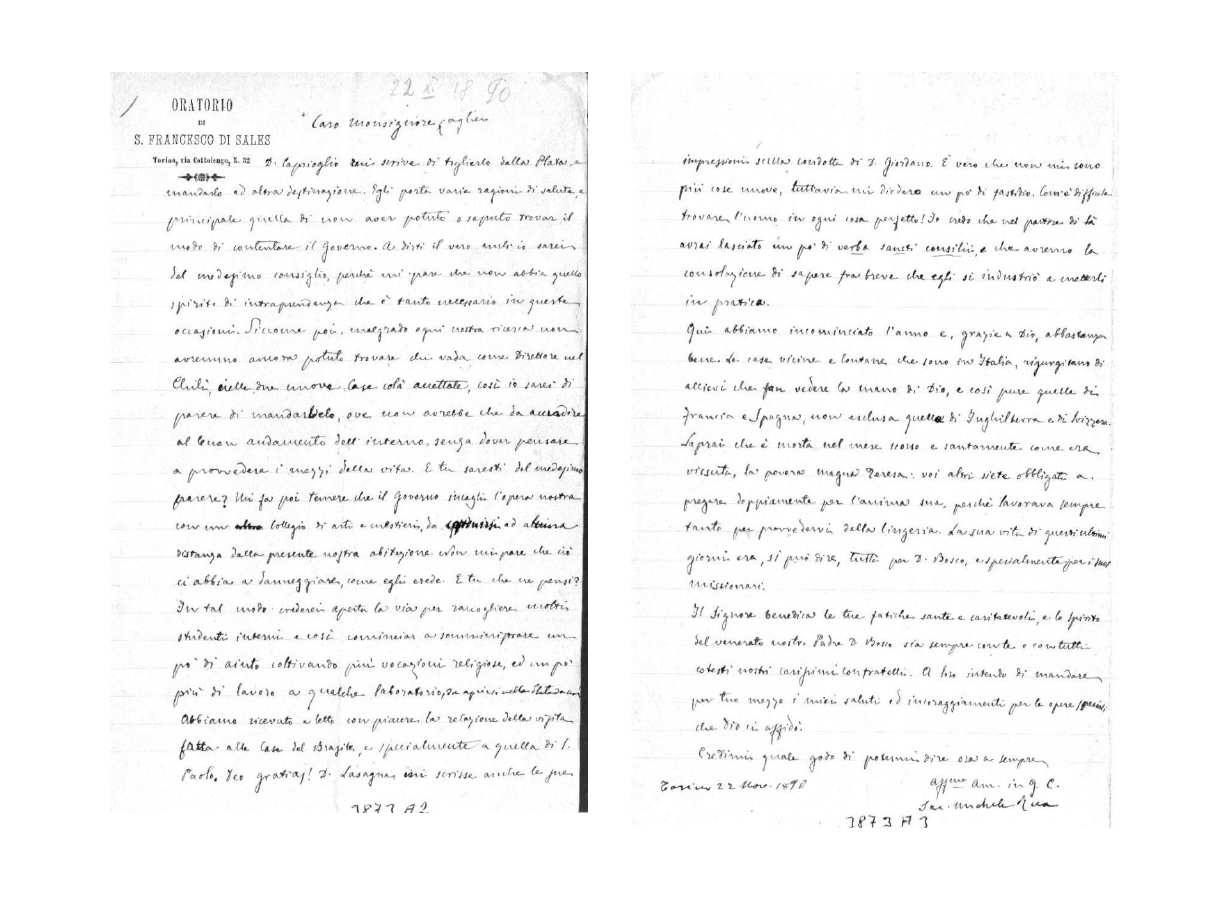 22 XI 18 90
ORATORIO
DI
S. FRANCESCO DI SALES
Torino, via Cottolengo, N. 32
Caro Monsignore Cagliero
D. Caprioglio mi scrive di toglierlo dalla Plata, e
mandarlo ad altra destinazione. Egli porta varie ragioni di salute, e
principale quella di non aver potuto o saputo trovar il
modo di contentare il Governo. A dirti il vero anch'io sarei
del medesimo consiglio, perchè mi pare che non abbia quello
spirito di intraprendenza che è tanto necessario in queste
occasioni. Siccome poi, malgrado ogni nostra ricerca non
avremmo ancora potuto trovare chi vada come Direttore nel
Chilì, nelle due nuove Case colà accettate, così io sarei di
parere di mandarvelo, ove non avrebbe che da accudire
al buon andamento dell'interno, senza dover pensare
a provvedere i mezzi della vita. E tu saresti del medesimo
parere? Mi fa poi temere che il Governo incagli l'opera nostra
con un collegio di arti e mestieri, da ad alcuna
distanza dalla presente nostra abitazione. Non mi pare che ciò
ci abbia a danneggiare, come egli crede. E tu che ne pensi?
In tal modo crederei aperta la via per raccogliere molti
studenti interni e così cominciar a somministrare un
po' di aiuto coltivando più vocazioni religiose, ed un po'
più di lavoro a qualche laboratorio, da aprirsi nella
Abbiamo ricevuto e letto con piacere la relazione della visita
fatta alle Case del Brasile, e specialmente a quella di S.
Paolo. Deo gratias! D. Lasagna mi scrisse anche le sue
3873 A2
impressioni sulla condotta di D. Giordano. È vero che non mi sono
più cose nuove, tuttavia mi diedero un po' di fastidio. Com'è difficile
trovare l'uomo in ogni cosa perfetto! Io credo che nel partire di là
avrai lasciato un po' di verba sancti consilii, e che avremo la
consolazione di sapere fra breve che egli si industriò a metterli
in pratica.
Quì abbiamo incominciato l'anno e, grazie a Dio, abbastanza
bene. Le case vicine e lontane che sono in Italia, rigurgitano di
allievi che fan vedere la mano di Dio, e così pure quelle di
Francia e Spagna, non esclusa quella di Inghilterra e di Svizzera.
Saprai che è morta nel mese scorso e santamente come era
vissuta, la povera magna Teresa: voi altri siete obbligati a
pregare doppiamente per l'anima sua, perchè lavorava sempre
tanto per provvedervi della lingeria. La sua vita di questi ultimi
giorni era, si può dire, tutta per D. Bosco, e specialmente per i suoi
missionari.
Il Signore benedica le tue fatiche sante e caritatevoli, e lo spirito
del venerato nostro Padre D. Bosco sia sempre con te e con tutti
cotesti nostri carissimi confratelli. A loro intendo di mandare
per tuo mezzo i miei saluti ed incoraggiamenti per le opere
che Dio ci affidò.
Credimi quale godo di potermi dire ora e sempre
Torino 22 Nov. 1890
Affmo Am. in G. C.
Sac. Michele Rua
3873 A3